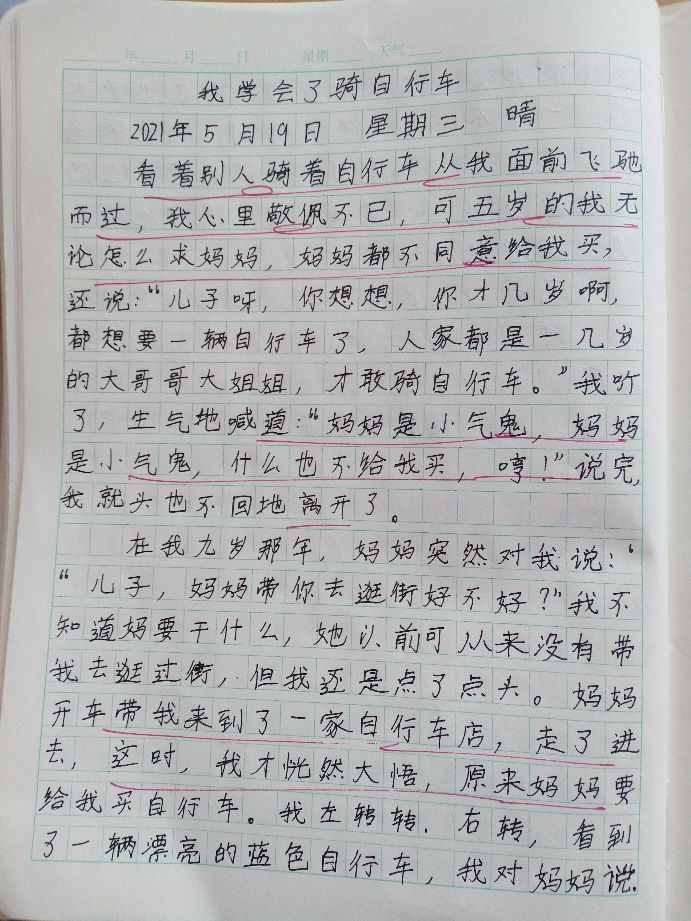 年 月 日 星期 天气
我学会了骑自行车
2021年5月19日 星期三 晴
看着别人骑着自行车从我面前飞驰
而过，我心里敬佩不已，可五岁的我无
论怎么求妈妈，妈妈都不同意给我买，
还说：“儿子呀，你想想，你才几岁啊，
都想要一辆自行车了，人家都是一几岁
的大哥哥大姐姐，才敢骑自行车。”我听
了，生气地喊道：“妈妈是小气鬼，妈妈
是小气鬼，什么也不给我买，哼！”说完，
我就头也不回地离开了。
在我九岁那年，妈妈突然对我说：“
“儿子，妈妈带你去逛街好不好？”我不
知道妈要干什么，她以前可从来没有带
我去逛过街，但我还是点了点头。妈妈
开车带我来到了一家自行车店，走了进
去，这时，我才恍然大悟，原来妈妈要
给我买自行车。我左转转．右转，看到
了一辆漂亮的蓝色自行车，我对妈妈说：